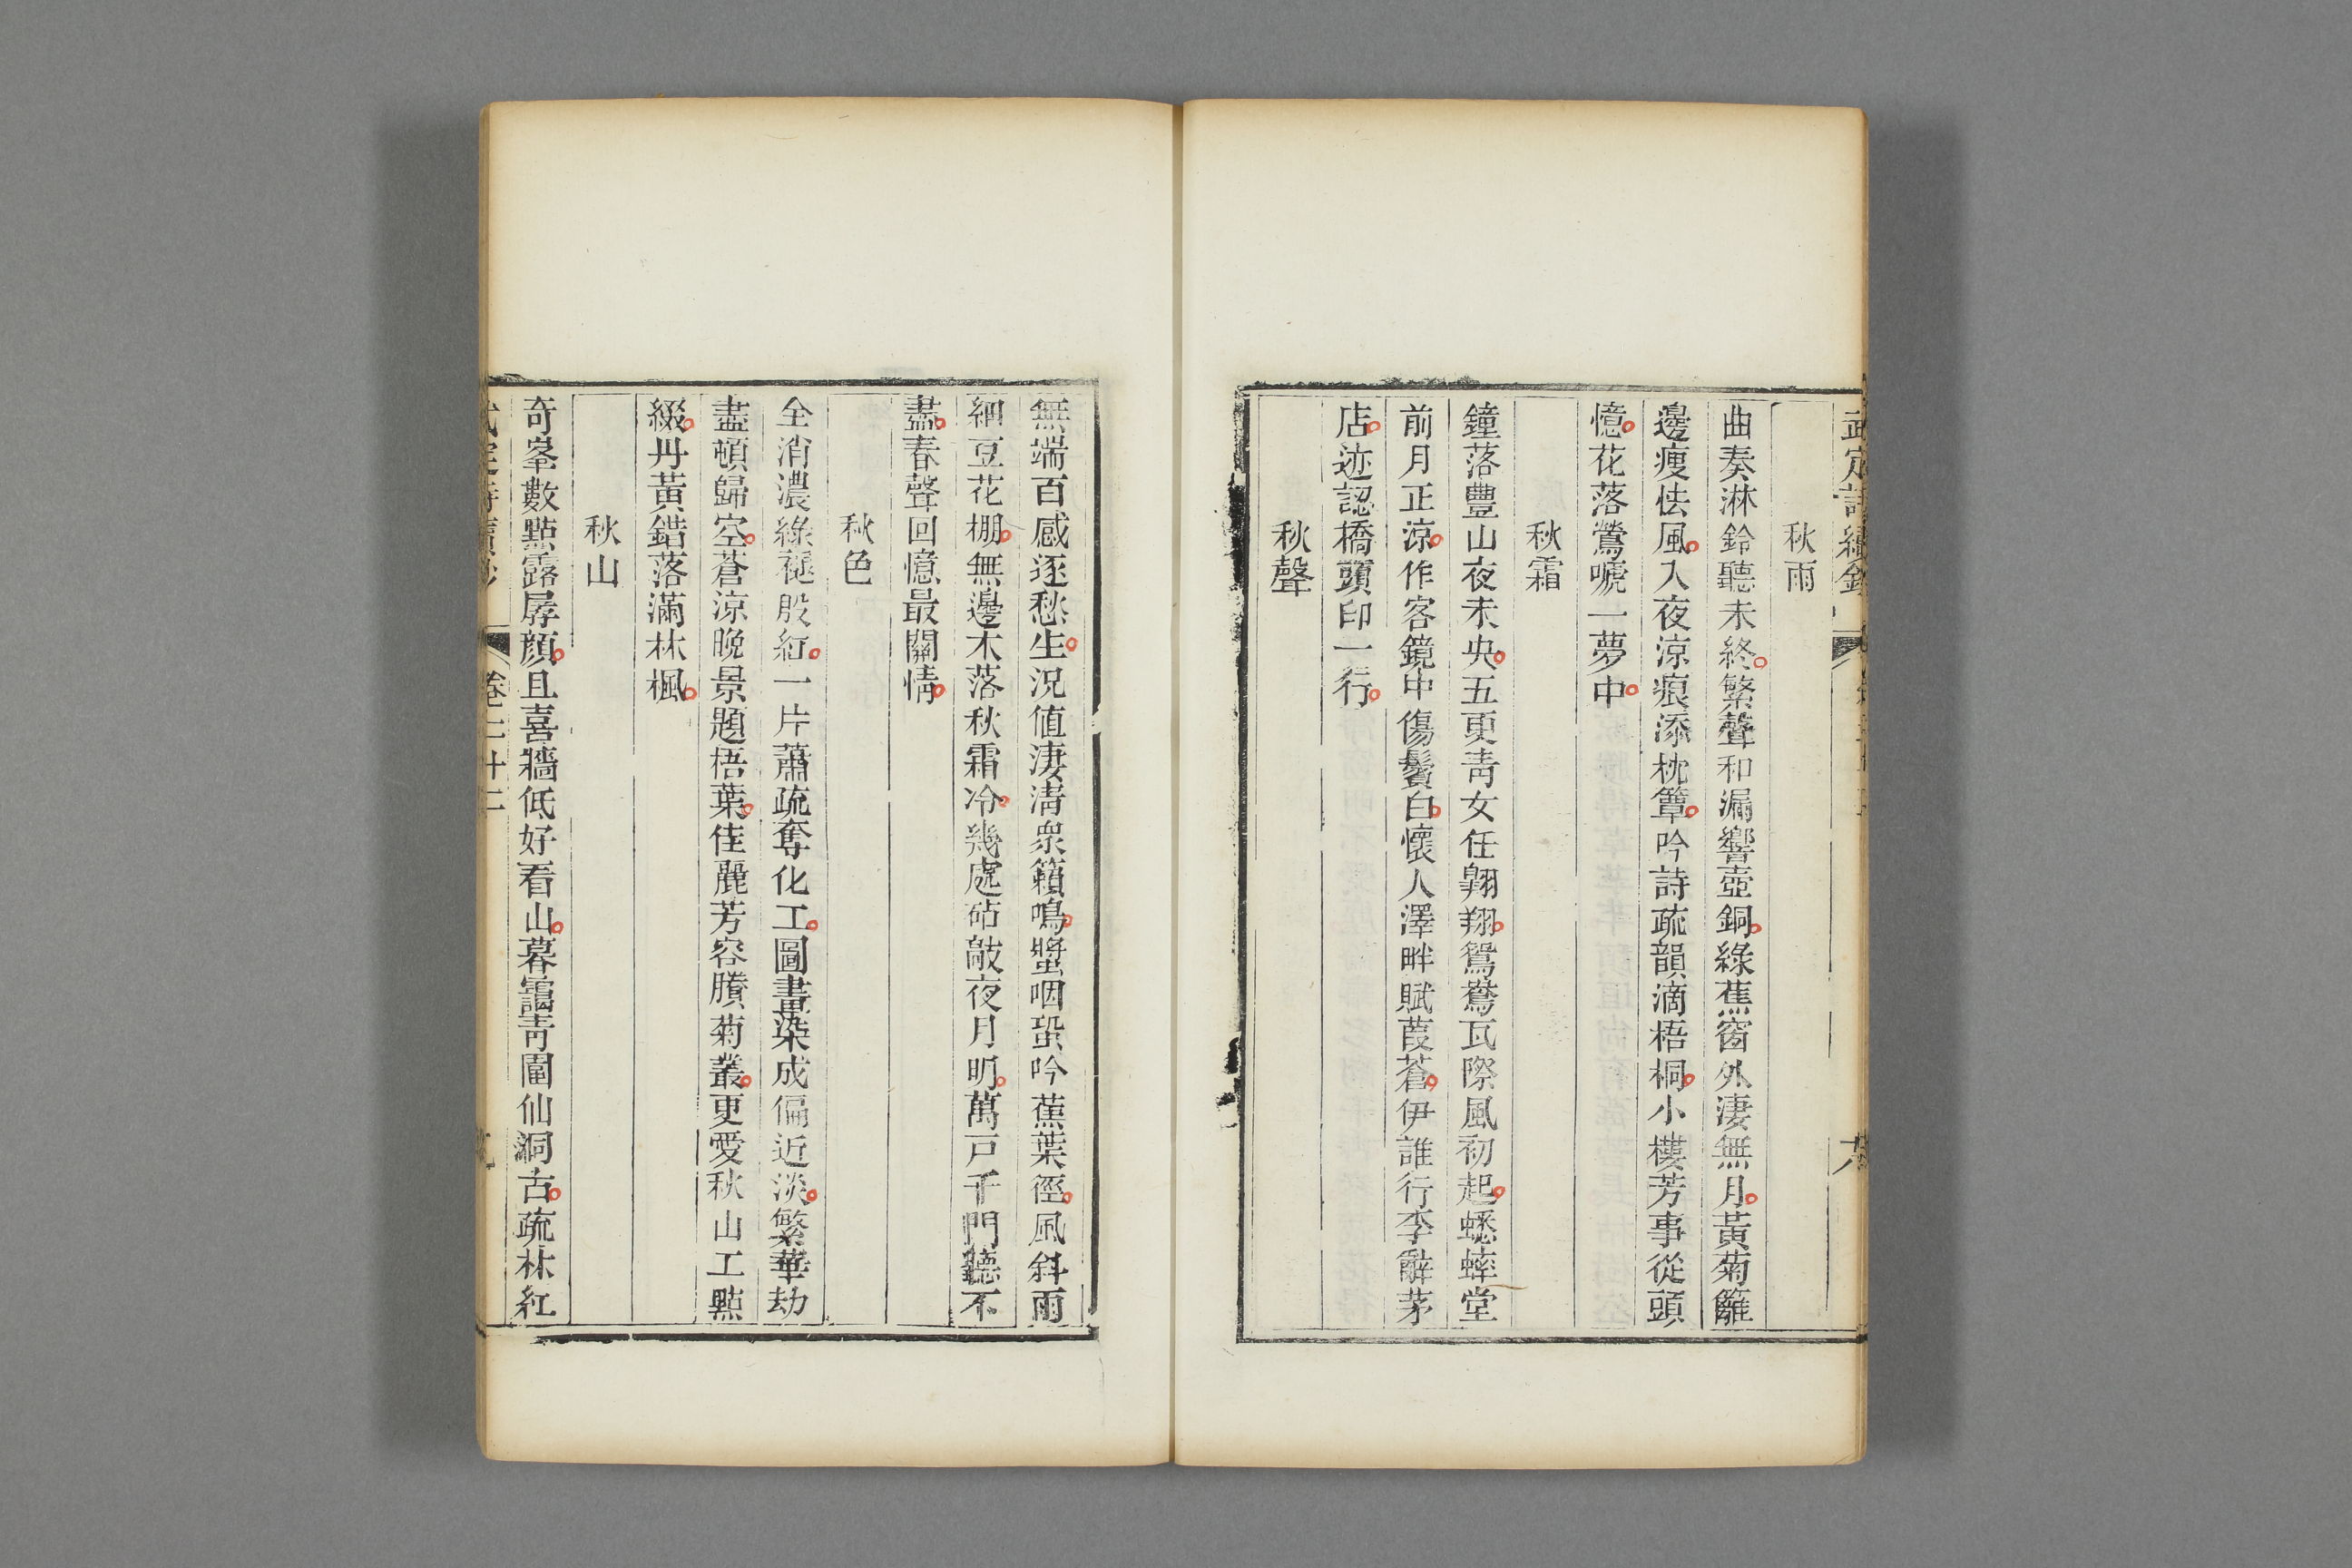 武定詩續鈔
秋雨
曲奏淋鈴聽未終繁聲和漏響壺銅綠蕉窗外淒無月黃菊籬
邊瘦怯風入夜涼痕添枕簟吟詩疏韻滴梧桐小樓芳事從頭
憶花落鶯嗁一夢中
秋霜
鐘落豐山夜未央五更靑女任翺翔鴛鴦瓦際風初起蟋蟀堂
前月正涼作客鏡中傷鬢白懷人澤畔賦葭蒼伊誰行李辭茅
店迹認橋頭印一行
秋聲
無端百感逐愁生況値淒淸衆籟鳴螿咽蛩吟蕉葉徑風斜雨
細豆花棚無邊木落秋霜冷幾處砧敲夜月明萬戸千門聽不
盡春聲回憶最關情
秋色
全消濃綠褪殷紅一片蕭疏奪化工圖畫染成偏近淡繁華劫
盡頓歸空蒼涼晚景題梧葉佳麗芳容賸菊叢更愛秋山工點
綴丹黃錯落滿林楓
秋山
奇峯數點露孱顏且喜牆低好看山暮靄靑圍仙洞古疏林紅
武定詩續鈔 卷二十二